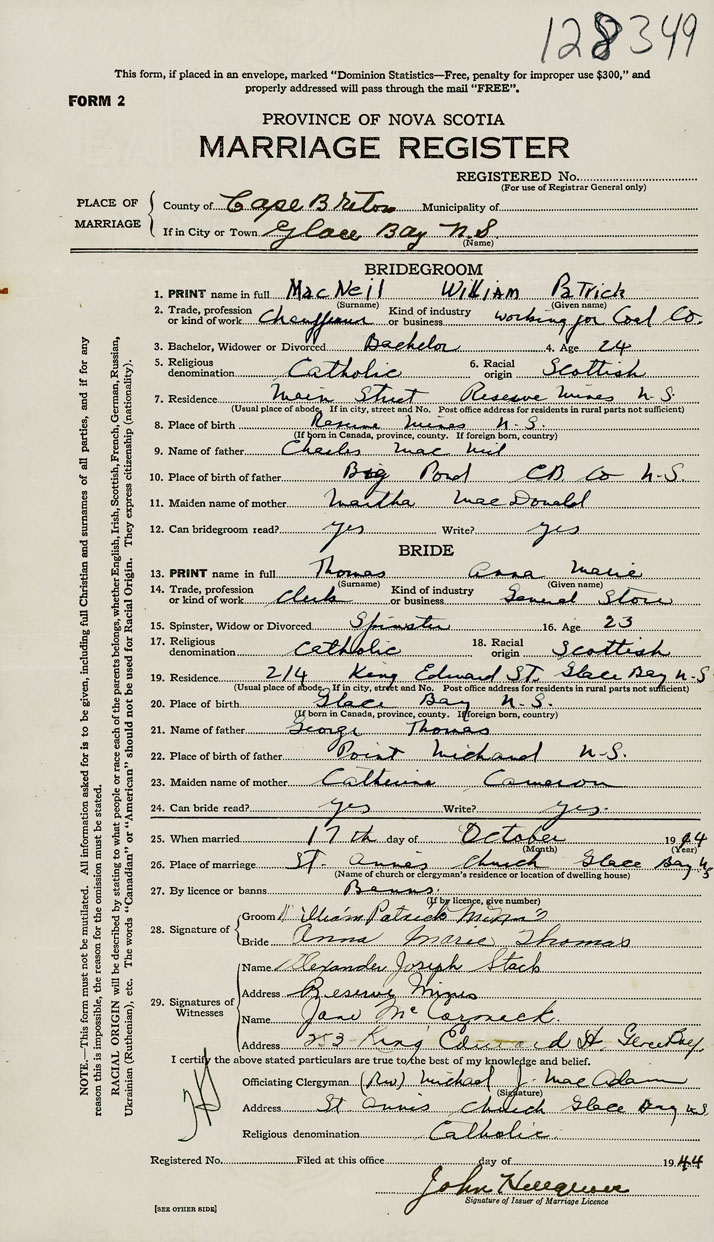 128349
This form, if placed in an envelope, marked "Dominion Statistics—Free, penalty for improper use $300," and
properly addressed will pass through the mail "FREE".
FORM 2
PROVINCE OF NOVA SCOTIA
MARRIAGE REGISTER
REGISTERED No.
(For use of Registrar General only)
PLACE OF MARRIAGE
County of Cape Breton Municipality of
If in City or Town Glace Bay N.S.
(Name)
BRIDEGROOM
1. PRINT name in full MacNeil William Patrick
(Surname) (Given name)
2. Trade, profession or kind of work Chauffeur Kind of industry or business working for Coal Co.
3. Bachelor, Widower or Divorced Bachelor 4. Age 24
5. Religious denomination Catholic 6. Racial origin Scottish
7. Residence Main Street Reserve Mines N.S.
(Usual place of abode. If in city, street and No. Post office address for residents in rural parts not sufficient)
8. Place of birth Reserve Mines N.S.
(If born in Canada, province, county. If foreign born, country)
9. Name of father Charles Mac Neil
10. Place of birth of father Big Pond CB Co N.S.
11. Maiden name of mother Martha MacDonald
12. Can bridegroom read? yes Write? yes
BRIDE
13. PRINT name in full Thomas Anna Marie
(Surname) (Given name)
14. Trade, profession or kind of work Clerk Kind of industry or business General Store
15. Spinster, Widow or Divorced Spinster 16. Age 23
17. Religious denomination Catholic 18. Racial origin Scottish
19. Residence 214 King Edward St. Glace Bay N.S
(Usual place of abode. If in city, street and No. Post office address for residents in rural parts not sufficient)
20. Place of birth Glace Bay N.S.
(If born in Canada, province, county. If foreign born, country)
21. Name of father George Thomas
22. Place of birth of father Point Michaud N.S.
23. Maiden name of mother Catherine Cameron
24. Can bride read? yes Write? yes.
25. When married 17th day of October 1944
(Month) (Year)
26. Place of marriage St. Anne's Church Glace Bay N.S
(Name of church or clergyman's residence or location of dwelling house)
27. By licence or banns Banns.
(If by licence, give number)
28. Signature of
Groom William Patrick
Bride Anna Marie Thomas
29. Signatures of Witnesses
Name Alexander Joseph Stack
Address Reserve Mines
Name Jane McCormack.
Address 253 King Edward St. Glace Bay.
I certify the above stated particulars are true to the best of my knowledge and belief.
Officiating Clergyman (Rev) Michael J. MacAdam
(Signature)
Address St Anne's Church Glace Bay N.S.
Religious denomination Catholic.
Registered No. Filed at this office day of 1944
John
Signature of Issuer of Marriage Licence
[SEE OTHER SIDE]
NOTE.—This form must not be mutilated. All information asked for is to be given, including full Christian and surnames of all parties, and if for any
reason this is impossible, the reason for the omission must be stated.
RACIAL ORIGIN will be described by stating to what people or race each of the parents belongs, whether English, Irish, Scottish, French, German, Russian,
Ukrainian (Ruthenian), etc. The words "Canadian" or "American" should not be used for Racial Origin. They express citizenship (nationality).